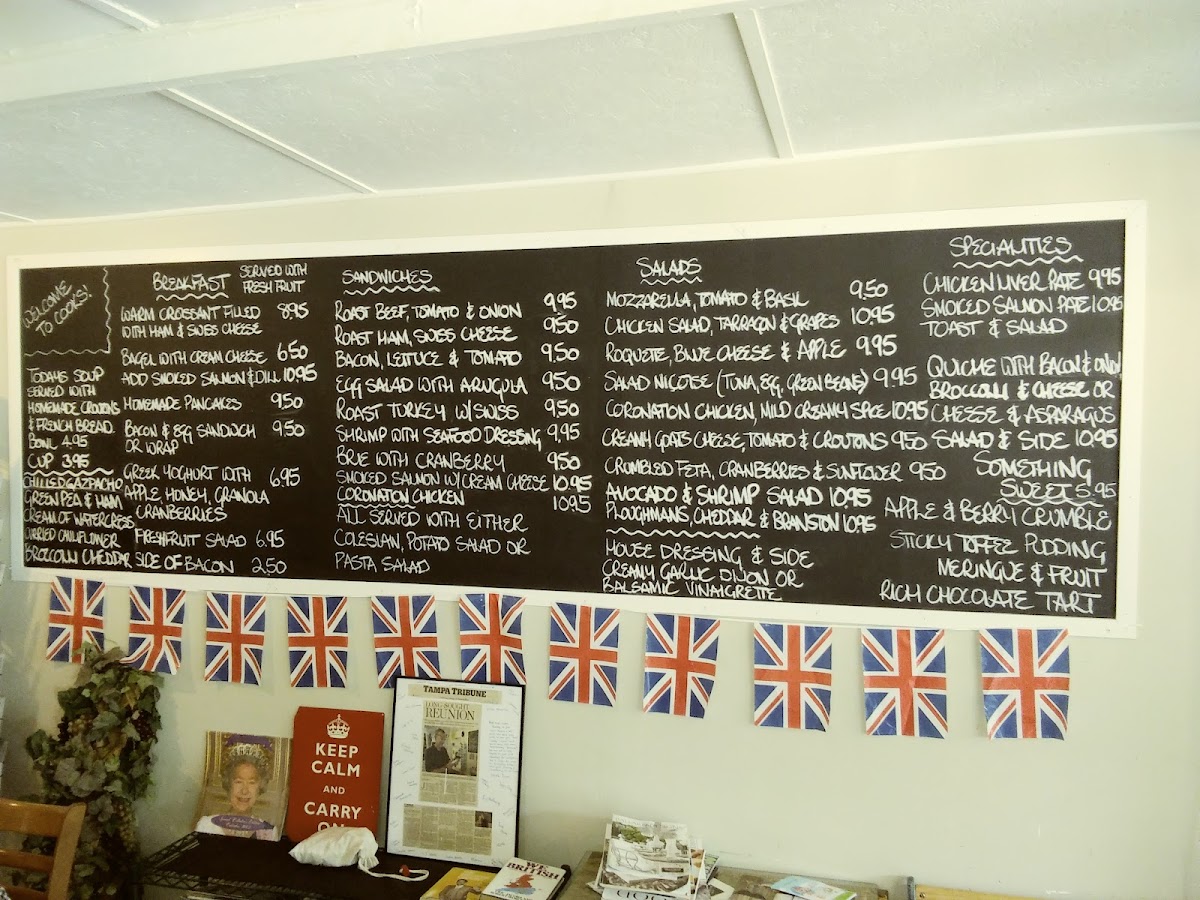 WELCOME
TO COOKS!
TODAYS SOUP
SERVED WITH
HOMEMADE CROUTONS
& FRENCH BREAD
BOWL 4.95
CUP 3.95
CHILLED GAZPACHO
GREEN PEA & HAM
CREAM OF WATERCRESS
CURRIED CAULIFLOWER
BROCCOLLI CHEDDAR
BREAKFAST SERVED WITH
FRESH FRUIT
WARM CROISSANT FILLED 8.95
WITH HAM & SWISS CHEESE
BAGEL WITH CREAM CHEESE 6.50
ADD SMOKED SALMON & DILL 10.95
HOMEMADE PANCAKES 9.50
BACON & EGG SANDWICH 9.50
OR WRAP
GREEK YOGHURT WITH 6.95
APPLE, HONEY, GRANOLA
CRANBERRIES
FRESH FRUIT SALAD 6.95
SIDE OF BACON 2.50
SANDWICHES
ROAST BEEF, TOMATO & ONION 9.95
ROAST HAM, SWISS CHEESE 9.50
BACON, LETTUCE & TOMATO 9.50
EGG SALAD WITH ARUGULA 9.50
ROAST TURKEY W/ SWISS 9.50
SHRIMP WITH SEAFOOD DRESSING 9.95
BRIE WITH CRANBERRY 9.50
SMOKED SALMON W/ CREAM CHEESE 10.95
CORONATION CHICKEN 10.95
ALL SERVED WITH EITHER
COLESLAN, POTATO SALAD OR
PASTA SALAD
SALADS
MOZZARELLA, TOMATO & BASIL 9.50
CHICKEN SALAD, TARRAGON & GRAPES 10.95
ROQUETE, BLUE CHEESE & APPLE 9.95
SALAD NICOISE (TUNA, EGG, GREEN BEANS) 9.95
CORONATION CHICKEN, MILD CREAMY SPICE 10.95
CREAMY GOATS CHEESE, TOMATO & CROUTONS 9.50
CRUMBLED FETA, CRANBERRIES & SUNFLOWER 9.50
AVOCADO & SHRIMP SALAD 10.95
PLOUGHMANS, CHEDDAR & BRANSTON 10.95
HOUSE DRESSING & SIDE
CREAMY GARLIC DIJON OR
BALSAMIC VINAIGRETTE
SPECIALITIES
CHICKEN LIVER PATE 9.95
SMOKED SALMON PATE 10.95
TOAST & SALAD
QUICHE WITH BACON & ONION
BROCCOLLI & CHEESE OR
CHEESE & ASPARAGUS
SALAD & SIDE 10.95
SOMETHING
SWEET 5.95
APPLE & BERRY CRUMBLE
STICKY TOFFEE PUDDING
MERINGUE & FRUIT
RICH CHOCOLATE TART
KEEP
CALM
AND
CARRY
ON
TAMPA TRIBUNE
LONG SOUGHT
REUNION
BRITISH